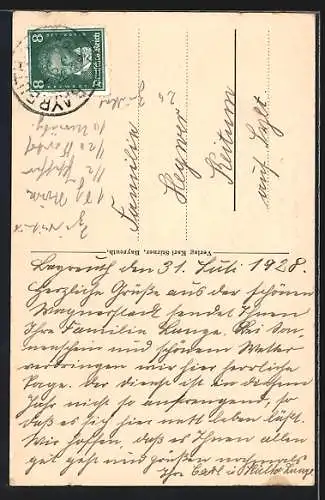 8 Deutsches Reich 8
BAYREUTH
Familie
Heymer
Keitum
auf Sylt
Verlag Karl Stirner, Bayreuth.
Bayreuth den 31. Juli 1928.
Herzliche Grüße aus der schönen
Wagnerstadt sendet Ihnen
Ihre Familie Lange. Bei Son-
nenschein und schönem Wetter
verbringen wir hier herrliche
Tage. Der Dienst ist in diesem
Jahr nicht so anstrengend, so
daß es sich hier nett leben läßt.
Wir hoffen, daß es Ihnen allen
gut geht und grüßen nochmals
Ihre Carl u. Lange